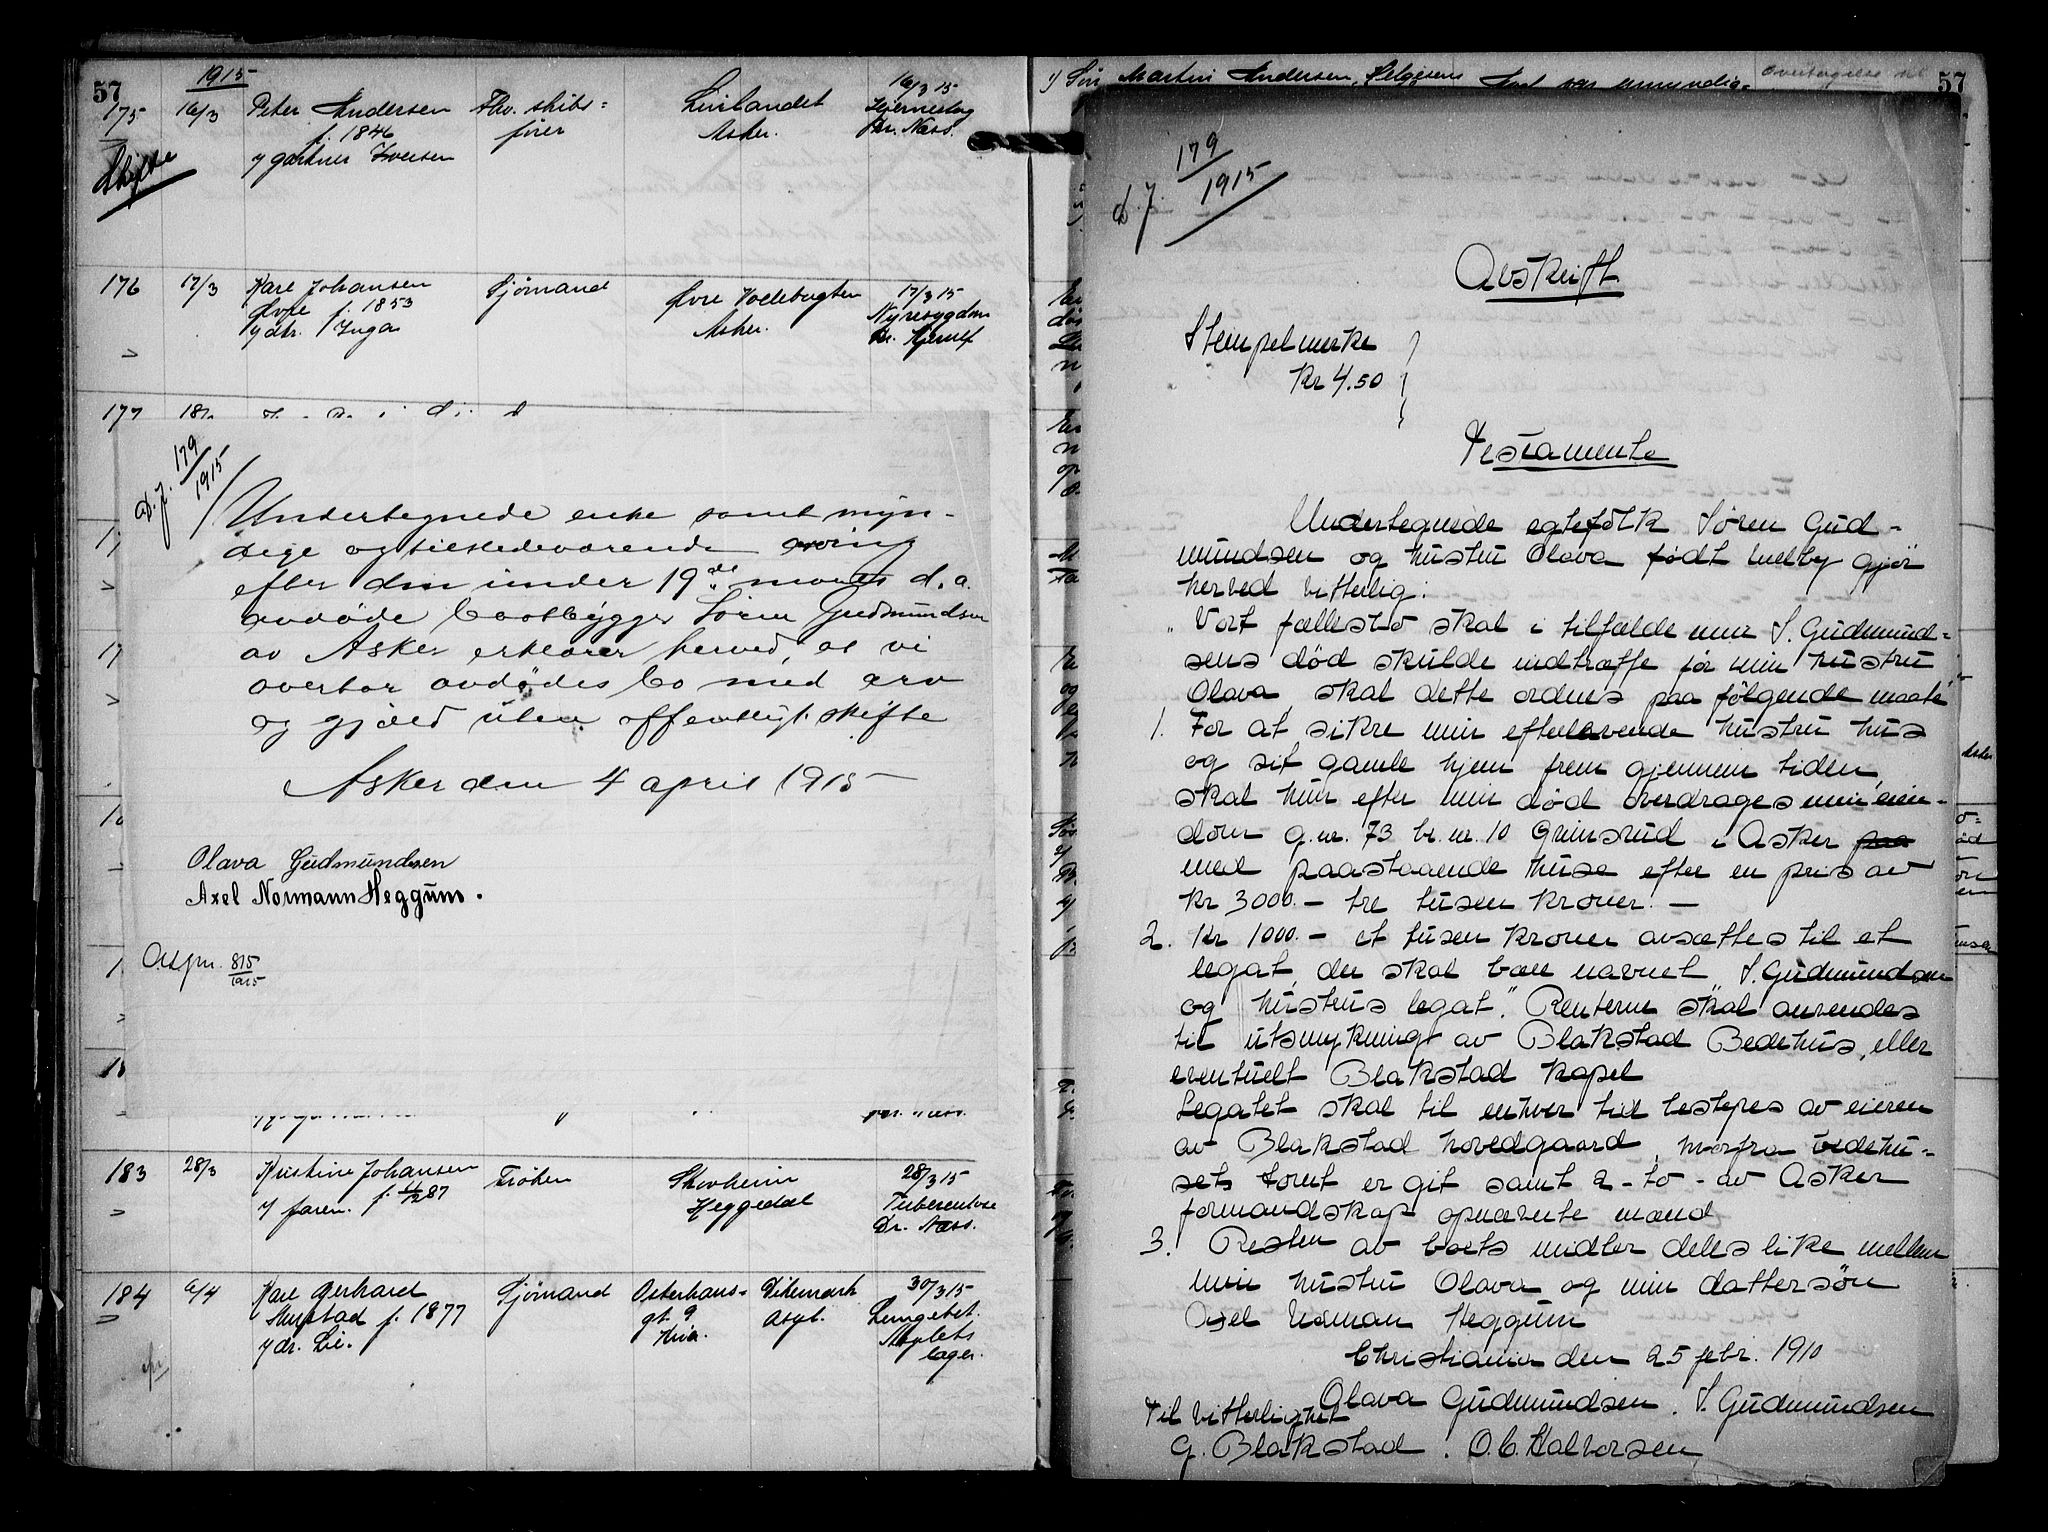 57
1915
175 16/3 Peter Andersen Fhv. skibs- Livlandet 16/3 15
f. 1846 fører Asker. Hjerneslag
v/ gartner Iversen Dr. Næss.
Skifte
176 17/3 Kare Johansen Sjömand Øvre Vollebugten 17/3 15
Øvre f. 1853 Asker. Nyresygdom
v/ dtr. Inga Dr.
177
D.f. 179/1915
Undertegnede enke samt myn-
dige og tilstedeværende arving
efter den under 19de mars d.a.
avdöde baatbygger Sören Gudmundsen
av Asker erklærer herved, at vi
overtar avdödes bo med arv
og gjæld uten offentligt skifte
Asker den 4 april 1915
Olava Gudmundsen
Axel Normann Heggum.
815/1915
183 28/3 Kristine Johansen Fröken Skovheim 28/3 15
v/ faren. f. 87 Heggedal Tuberculose
Dr. Næss.
184 6/4 Kare Gerhard Sjömand Osterhaus- Dikemark 30/3 15
f. 1877 gt. 9 Asyl. Lungebet.
v/ dr. Lie. Kria. Asylets
læge.
1) Martin Andersen, Helgesens
Overtagelse
57
D.f. 179/1915
Avskrift
Stempelmerke
Kr 4.50
Testamente
Undertegnede egtefolk Søren Gud-
mundsen og hustru Olava født Melby gjør
herved vitterlig:
"Vort fællesbo skal i tilfælde min S. Gudmund-
sens død skulde indtræffe før min hustru
Olava, skal dette ordnes paa følgende maate
1. For at sikre min efterlevende hustru hus
og sit gamle hjem frem gjennem tiden,
skal hun efter min død overdrages min eien-
dom g.nr. 73 br. nr. 10 Grinsrud i Asker paa
med paastaaende huse efter en pris av
Kr 3000.- tre tusen kroner. -
2. Kr 1000.- et tusen kroner avsættes til et
legat, der skal bære navnet "S. Gudmundsen
og hustrus legat." Renterne skal anvendes
til utsmykning av Blakstad Bedehus, eller
eventuelt Blakstad Kapel
Legatet skal til enhver tid bestyres av eieren
av Blakstad hovedgaard, hvorfra bedehu-
sets tomt er git samt 2 - to - av Asker
formandskap opnævnte mænd
3. Resten av boets midler deles like mellem
min hustru Olava og min dattersøn
Axel Norman Heggum
Christiania den 25 febr. 1910
Olava Gudmundsen. S. Gudmundsen
Til Vitterlighet
G. Blakstad. O.C. Halvorsen